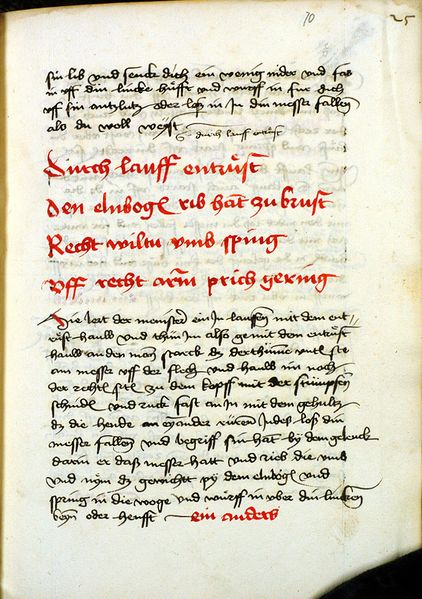 70
25
sin lib vnd senck dich ein wenig nider vnd fas
in vff din lincke hüfft vnd würff in für dich
vff sin antzlutz oder loß in In din messer fallen
also du woll weyst
durch lauff entrüst
Durch lauff entrüst
Den elnbogl rib hat zu brust
Recht wiltu vmb spring
Vff recht arm prich gering
Hie lert der meinster ein In lauffen mit dem ent
rüst hauw vnd thun Im also ge mit dem entrüst
hauw an den man starck dz der thume vntl ste
am messer vff der flech vnd hauw im noch
der rechtl sitl zu dem kopff mit der stumpfen
schnidl vnd ruck fast an In mit dem gehultz
dz die hende an eynander rüren Indes loß din
messer fallen vnd begriff sin hant by dem gelenck
darin er daß messer hatt vnd rieb die vmb
vnd nym dz gewicht py dem elnbogl vnd
spring in die woge vnd würff in vber din lincken
beyn oder heufft ein anders